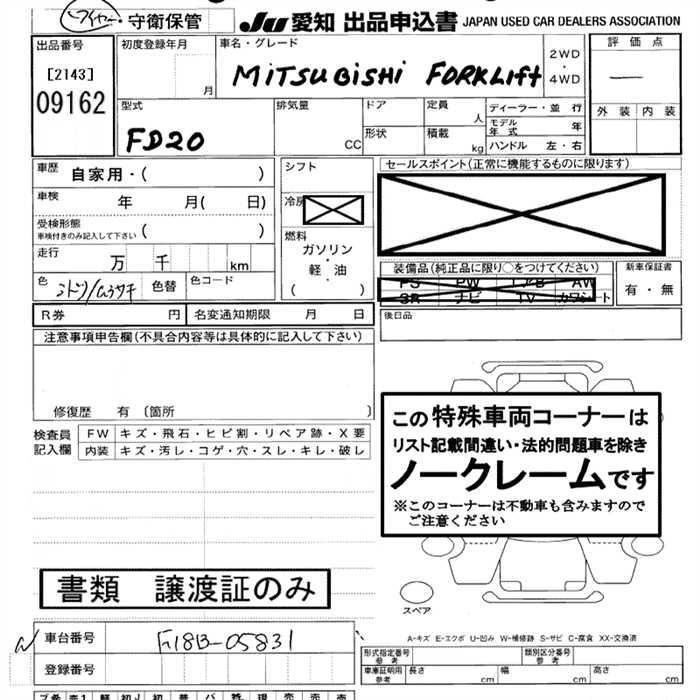 ワイヤー・守衛保管
JU 愛知 出品申込書 JAPAN USED CAR DEALERS ASSOCIATION
出品番号
[2143]
09162
初度登録年月
月
車名・グレード
MITSUBISHI FORKLift
2WD
・
4WD
評価点
—
外装 内装
型式
FD20
排気量
CC
ドア
形状
定員
人
積載
kg
ディーラー・並 行
モデル年式 年
ハンドル 左・右
車歴
自家用・( )
車検
年 月( 日)
受検形態
車検付きのみ記入して下さい ( )
走行
万 千 km
色
ミドリ/ムラサキ
色替
色コード
シフト
冷房
燃料
ガソリン
・
軽 油
( )
セールスポイント(正常に機能するものに限ります)
装備品(純正品に限り○をつけてください)
PS PW エアB AW
SR ナビ TV カワシート
新車保証書
有・無
R券 円
名変通知期限 月 日
後日品
注意事項申告欄(不具合内容等は具体的に記入して下さい)
修復歴 有 〔箇所 〕
検査員
記入欄
FW キズ・飛石・ヒビ割・リペア跡・X要
内装 キズ・汚レ・コゲ・穴・スレ・キレ・破レ
この特殊車両コーナーは
リスト記載間違い・法的問題車を除き
ノークレームです
※このコーナーは不動車も含みますので
ご注意ください
書類 譲渡証のみ
スペア
車台番号
F18B-05831
登録番号
A-キズ E-エクボ U-凹み W-補修跡 S-サビ C-腐食 XX-交換済
形式指定番号
参考
類別区分番号
参考
車庫証明用
参考
長さ cm
幅 cm
高さ cm